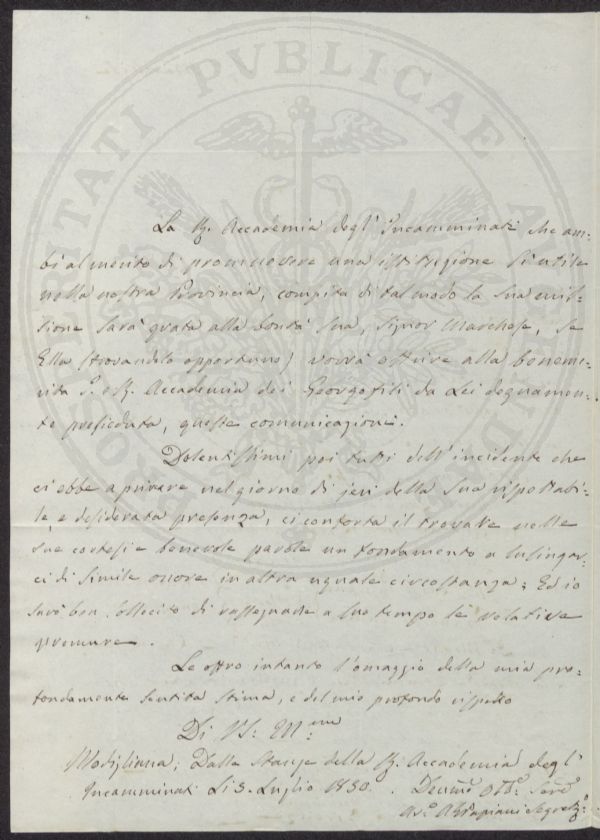 La R. Accademia degl' Incamminati che am=
bi al merito di promuovere una istituzione sì utile
nella nostra Provincia, compita di tal modo la sua mis=
sione sarà grata alla bontà sua, Signor Marchese, se
Ella (trovandolo opportuno) vorrà offrire alla beneme=
rita I. e R. Accademia dei Georgofili da Lei degnamen=
te preseduta, queste comunicazioni.
Dolentissimi poi tutti dell' incidente che
ci ebbe a privare nel giorno di jeri della sua rispettabi=
le e desiderata presenza, ci conforta il trovare nelle
sue cortesi e benevole parole un fondamento a lusingar=
ci di simile onore in altra uguale circostanza; Ed io
sarò ben sollecito di rassegnare a suo tempo le relative
premure.
Le offro intanto l'omaggio della mia pro=
fondamente sentita stima, e del mio profondo rispetto
Di V.S. Ill.ma
Modigliana; Dalle Stanze della R. Accademia degl'
Incamminati Li 3. Luglio 1850. Devmo Obbo Servo
Segret.o
PUBLICAE